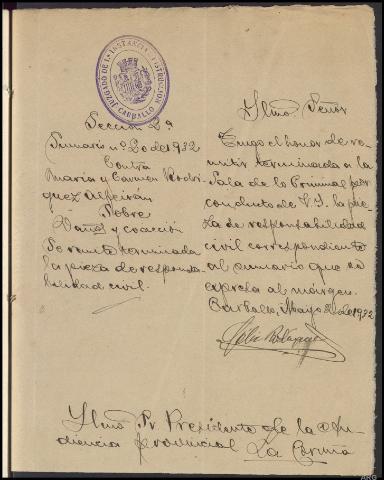 JUZGADO DE 1ª INSTANCIA E INSTRUCCIÓN
CARBALLO
Sección 2ª
Sumario nº 20 de 1932
Contra
María y Carmen Rodri-
guez
Sobre
Daños y coacción
Se remite terminada
la pieza de responsa-
bilidad civil.
Ilmo. Señor
Tengo el honor de re-
mitir terminada a la
Sala de lo Criminal por
conducto de V.I. la pie-
za de responsabilidad
civil correspondiente
al sumario que se
expresa al márgen.
Carballo, Mayo de 1932
Ilmo Sr Presidente de la Au-
diencia provincial La Coruña
ARG